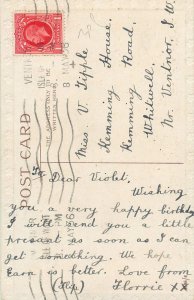 Miss V. Tipple
Hemming House.
Hemming Road.
Whitwell.
Nr. Ventnor. I.W
POST CARD
THE ADDRESS ONLY TO BE
WRITTEN HERE.
Dear Violet.
Wishing
you a very happy birthday
I will send you a little
present as soon as I can
get something. We hope
is better. Love from
Florrie xx